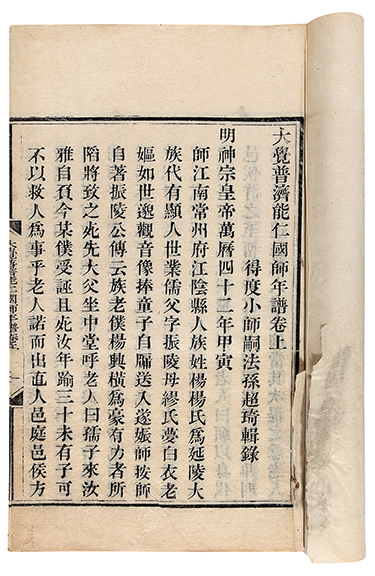 大覺普濟能仁國師年譜卷上
得度小師嗣法孫超琦輯錄
明神宗皇帝萬曆四十二年甲寅
師江南常州府江陰縣人族姓楊楊氏爲延陵大
族代有顯人世業儒父字振陵母繆氏夢白衣老
嫗如世邈觀音像捧童子自牖送入遂娠師按師
自著振陵公傳云族老僕楊興橫爲豪有力者所
陷將致之死先大父坐中堂呼老人曰孺子來汝
雅自負今某僕受誣且死汝年踰三十未有子可
不以救人爲事乎老人諾而出直入邑庭邑侯方